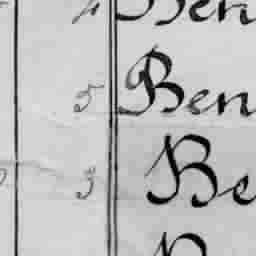 4 Ben
5 Ben
3 Be